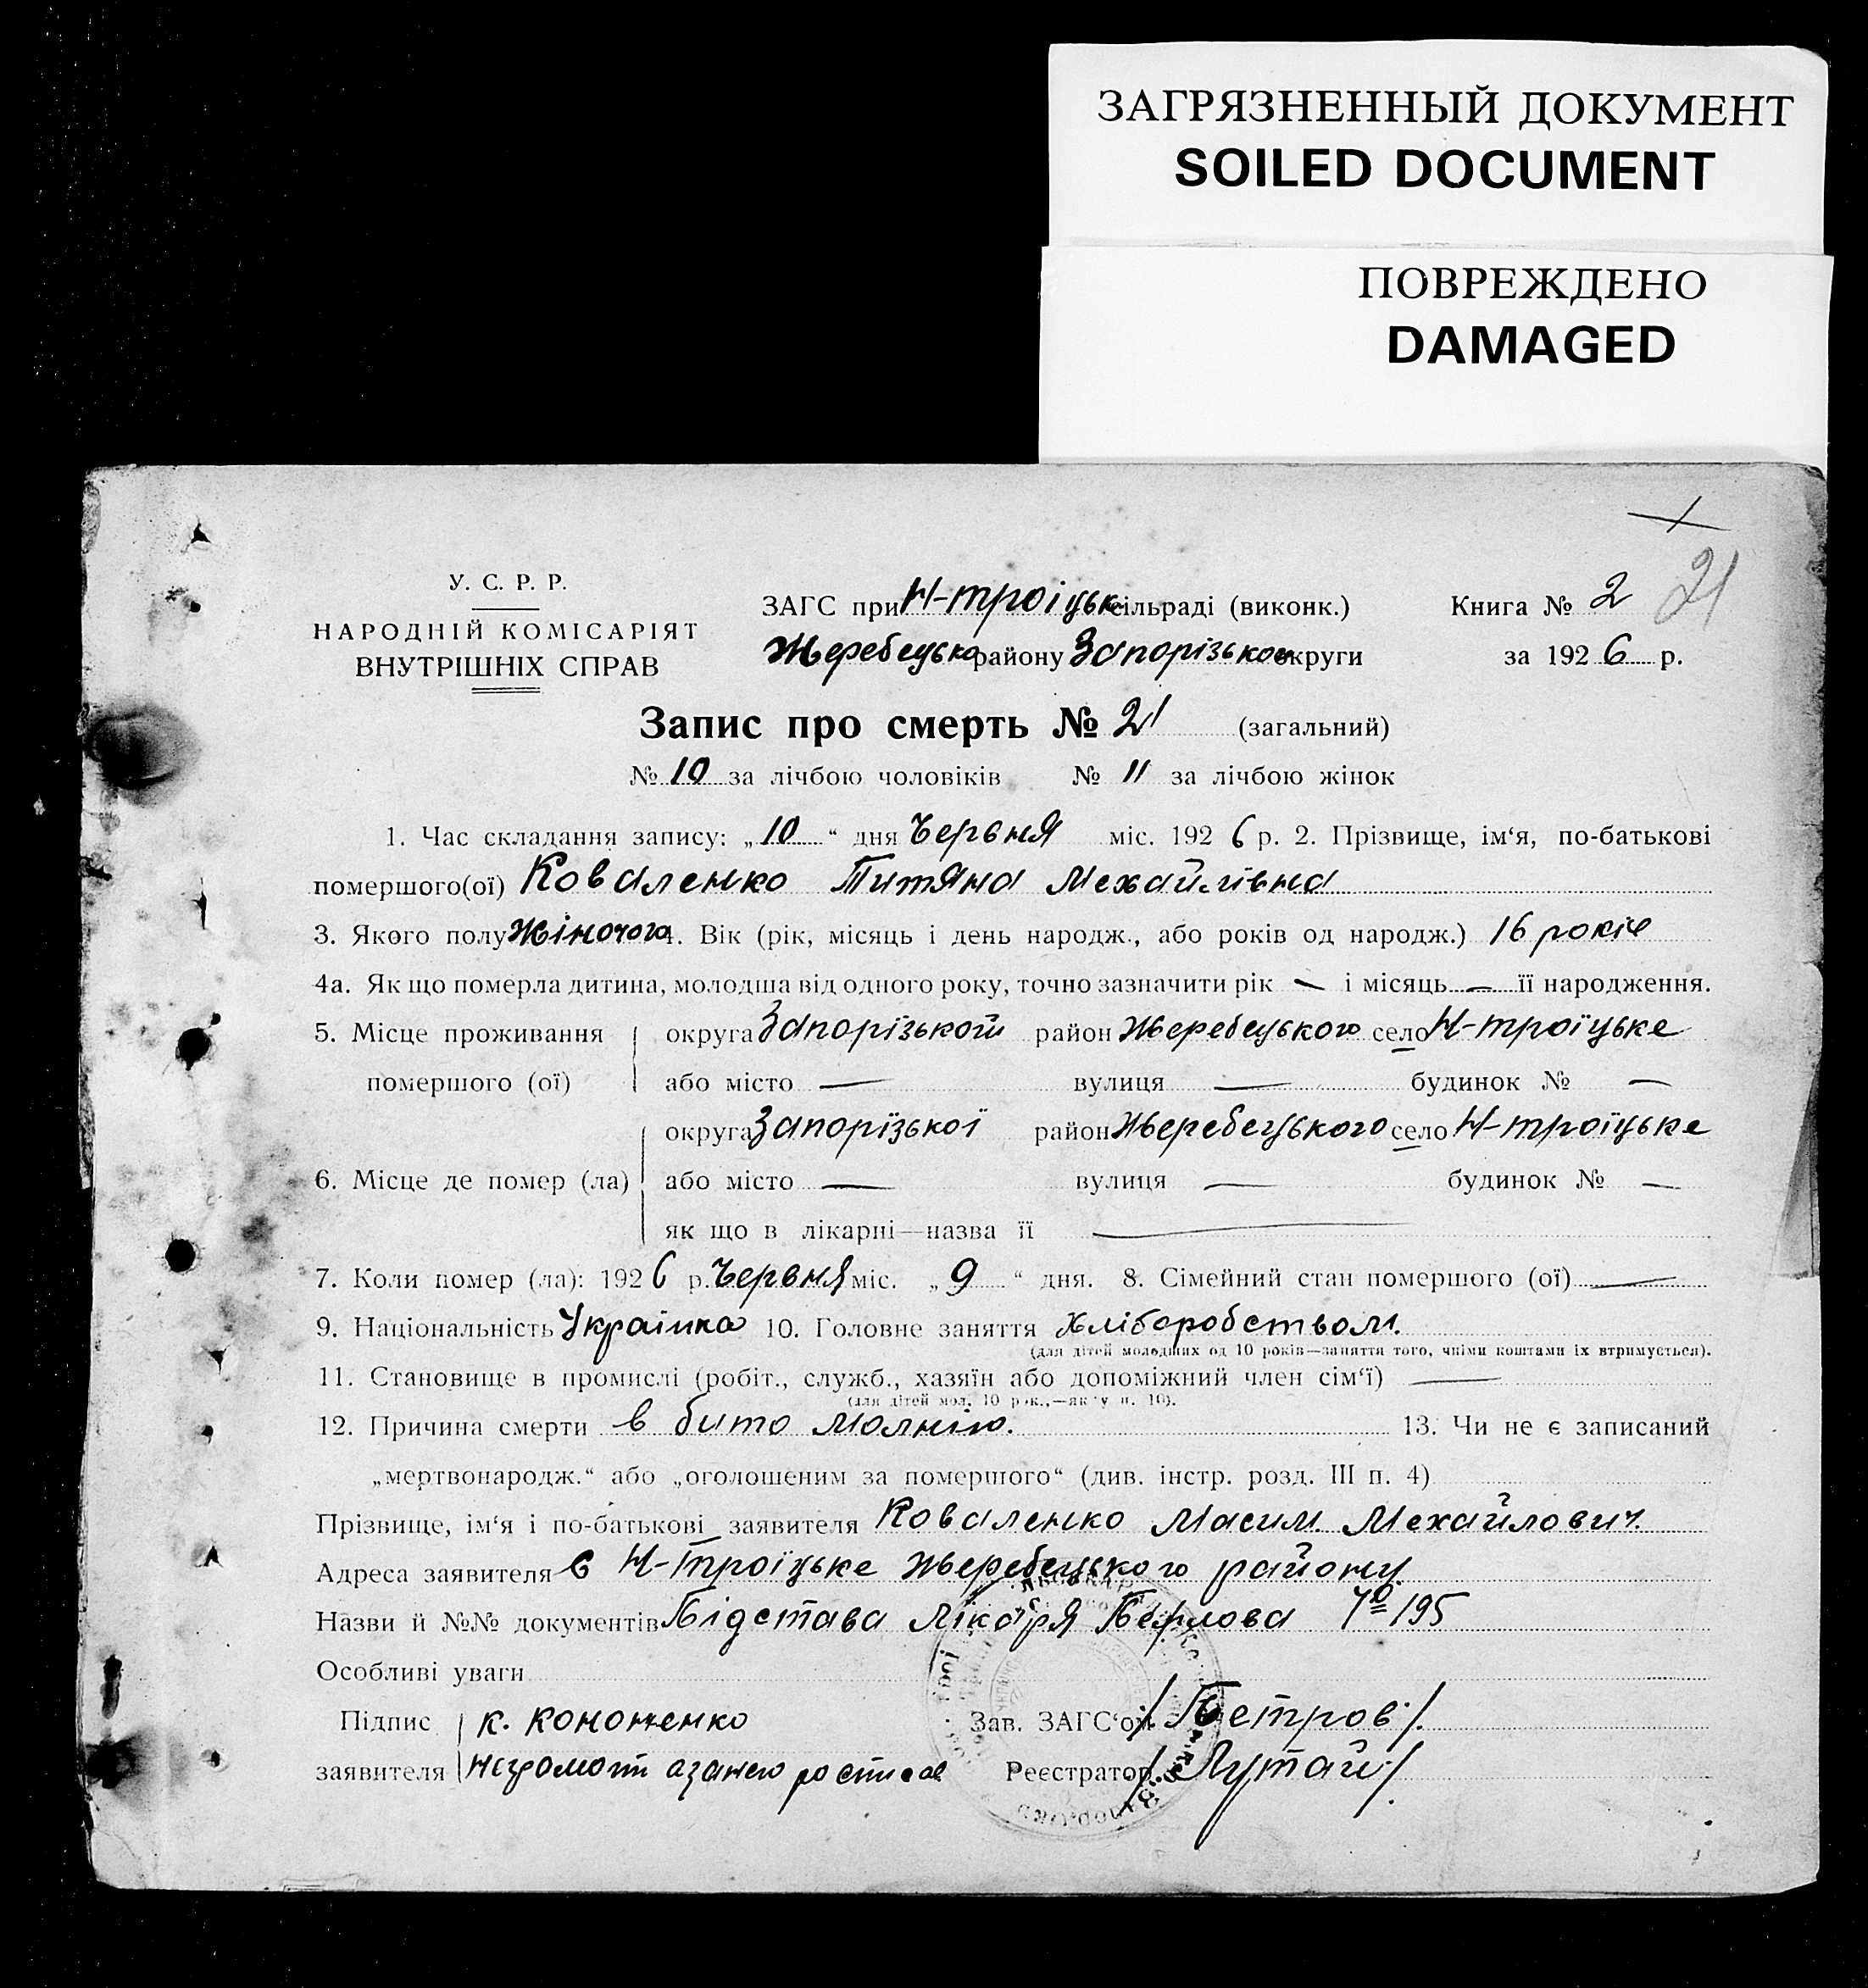 ЗАГРЯЗНЕННЫЙ ДОКУМЕНТ
SOILED DOCUMENT
ПОВРЕЖДЕНО
DAMAGED
21
У. С. Р. Р.
НАРОДНІЙ КОМІСАРІЯТ
ВНУТРІШНІХ СПРАВ
ЗАГС при Н-троіцьк сільраді (виконк.)
Жеребецько району Запорізькои округи
Книга № 2
за 1926 р.
Запис про смерть № 21 (загальний)
№ 10 за лічбою чоловіків № 11 за лічбою жінок
1. Час складання запису: „10“ дня Червня міс. 1926 р. 2. Прізвище, ім‘я, по-батькові
помершого(ої) Коваленко Титяна Мехайлівна
3. Якого полу Жіночого 4. Вік (рік, місяць і день народж., або років од народж.) 16 років
4а. Як що померла дитина, молодша від одного року, точно зазначити рік — і місяць — її народження.
5. Місце проживання округа Запорізькой район Жеребецького село Н-троїцьке
помершого (ої) або місто — вулиця — будинок № —
округа Запорїзької район Жеребецького село Н-троїцьке
6. Місце де помер (ла) або місто — вулиця — будинок № —
як що в лікарні—назва її —
7. Коли помер (ла): 1926 р. Червня міс. „9“ дня. 8. Сімейний стан помершого (ої) —
9. Національність Українка 10. Головне заняття Хліборобством.
(для дітей молодших од 10 років—заняття того, чиїми коштами їх втримується).
11. Становище в промислі (робіт., служб., хазяїн або допоміжний член сім‘ї) —
(для дітей мол. 10 рок.,—як у п. 10).
12. Причина смерти в бито молнією. 13. Чи не є записаний
„мертвонародж.“ або „оголошеним за помершого“ (див. інстр. розд. III п. 4)
Прізвище, ім‘я і по-батькові заявителя Коваленко Масим Мехайлович
Адреса заявителя в Н-Троїцьке Жеребецького району
Назви й №№ документів Підстава лікаря 195
Особливі уваги
Підпис К. Кононенко Зав. ЗАГС‘ом /Петров/.
заявителя Неграмотн Реєстратор /Лутай/